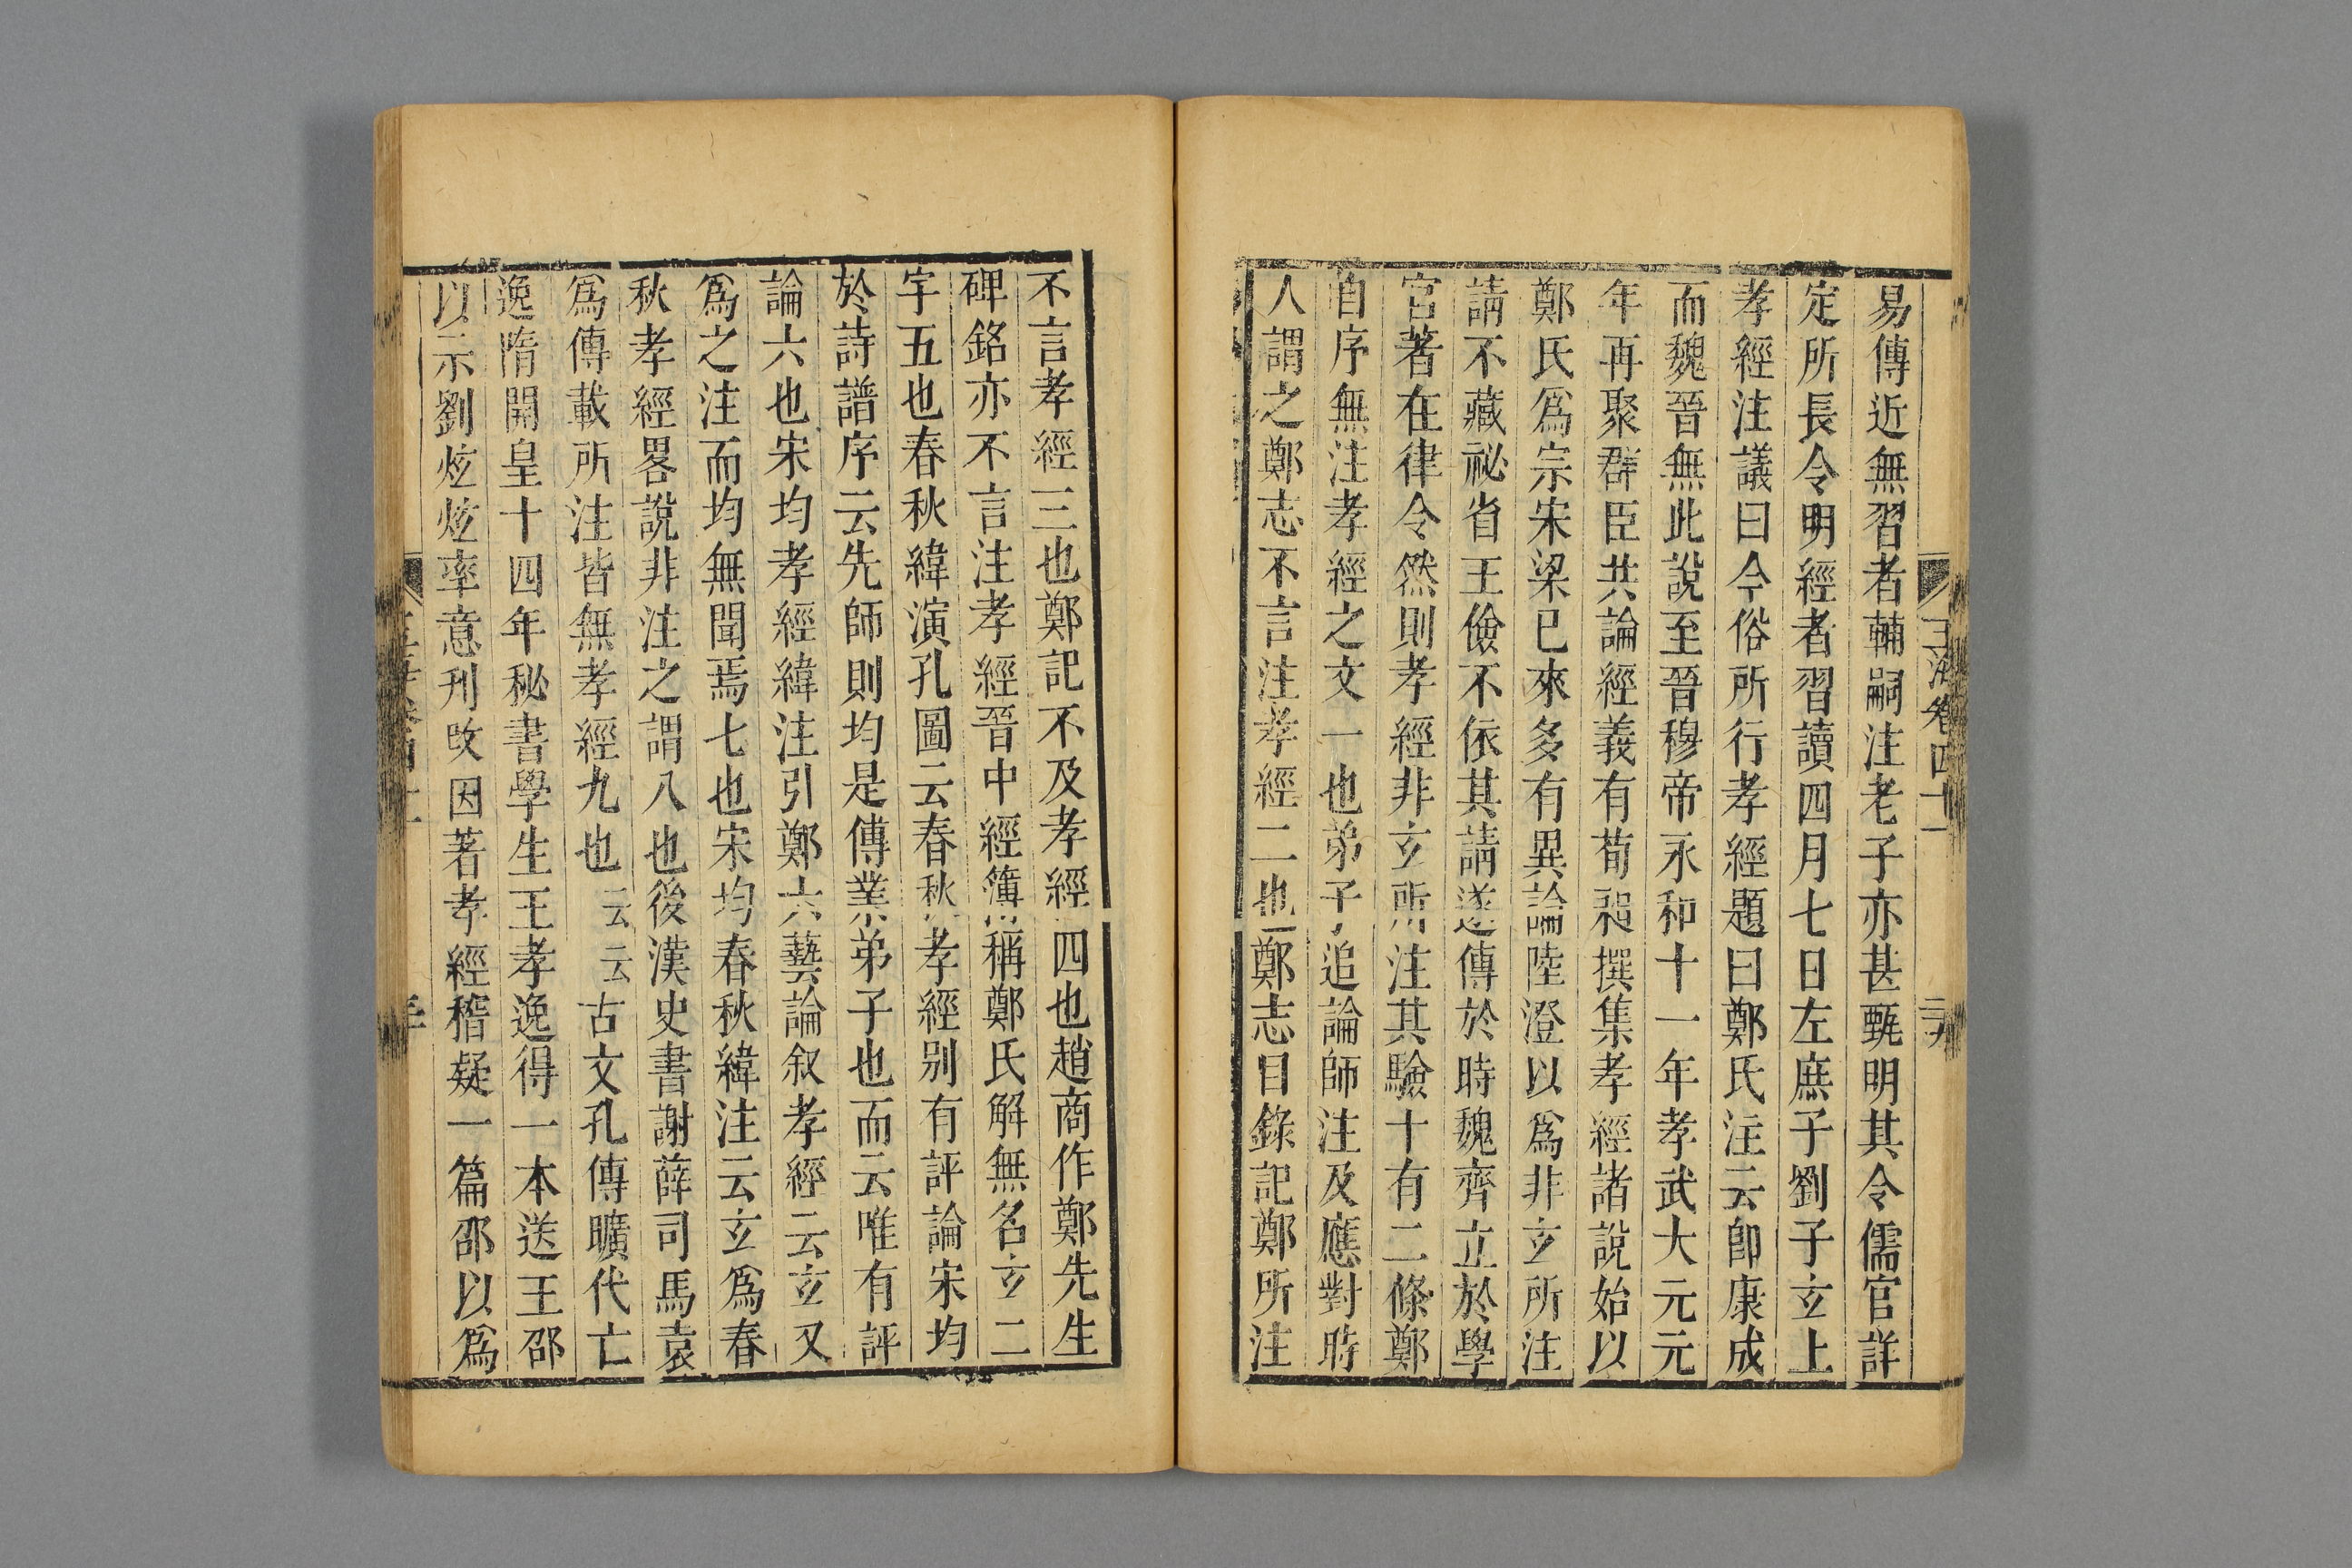 玉海卷四十一
易傳近無習者輔嗣注老子亦甚甄明其令儒官詳
定所長令明經者習讀四月七日左庶子劉子玄上
孝經注議曰今俗所行孝經題曰鄭氏注云卽康成
而魏晉無此說至晉穆帝永和十一年孝武大元元
年再聚群臣共論經義有荀昶撰集孝經諸說始以
鄭氏爲宗宋梁已來多有異論陸澄以爲非玄所注
請不藏祕省王儉不依其請遂傳於時魏齊立於學
官著在律令然則孝經非玄所注其驗十有二條鄭
自序無注孝經之文一也弟子追論師注及應對時
人謂之鄭志不言注孝經二也鄭志目錄記鄭所注
不言孝經三也鄭記不及孝經四也趙商作鄭先生
碑銘亦不言注孝經晉中經簿稱鄭氏解無名玄二
字五也春秋緯演孔圖云春秋孝經别有評論宋均
於詩譜序云先師則均是傳業弟子也而云唯有評
論六也宋均孝經緯注引鄭六藝論叙孝經云玄又
爲之注而均無聞焉七也宋均春秋緯注云玄爲春
秋孝經畧說非注之謂八也後漢史書謝薛司馬袁
爲傳載所注皆無孝經九也云云古文孔傳曠代亡
逸隋開皇十四年秘書學生王孝逸得一本送王邵
以示劉炫炫率意刋改因著孝經稽疑一篇邵以爲